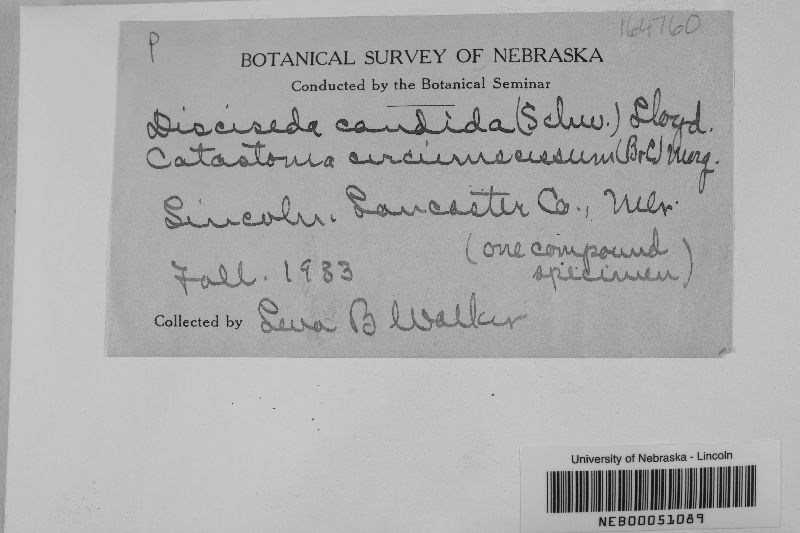 P
164760
BOTANICAL SURVEY OF NEBRASKA
Conducted by the Botanical Seminar
Disciseda candida (Schw.) Lloyd.
Catastoma circumscissum (B&C) Morg.
Lincoln. Lancaster Co., Nebr.
(one compound
Fall. 1933 specimen)
Collected by Leva B Walker
University of Nebraska - Lincoln
NEB00051089